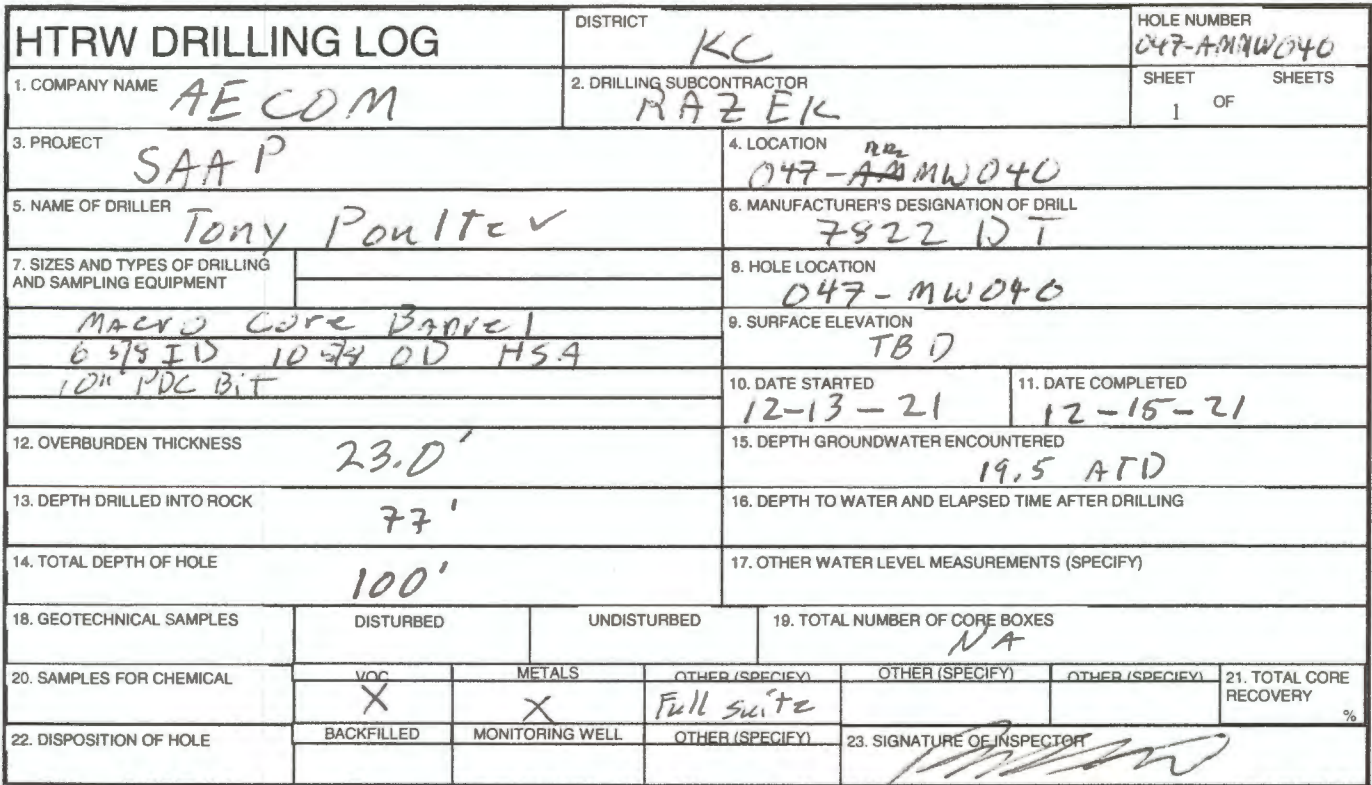 HTRW DRILLING LOG
DISTRICT
KC
HOLE NUMBER
047-AMMW040
1. COMPANY NAME
AECOM
2. DRILLING SUBCONTRACTOR
RAZEK
SHEET SHEETS
1 OF
3. PROJECT
SAAP
4. LOCATION
047-AMMW040
5. NAME OF DRILLER
Tony Poulter
6. MANUFACTURER'S DESIGNATION OF DRILL
7822 DT
7. SIZES AND TYPES OF DRILLING
AND SAMPLING EQUIPMENT
Macro Core Barrel
6 5/8 ID 10 5/8 OD HSA
10" PDC Bit
8. HOLE LOCATION
047-MW040
9. SURFACE ELEVATION
TBD
10. DATE STARTED
12-13-21
11. DATE COMPLETED
12-15-21
12. OVERBURDEN THICKNESS
23.0'
15. DEPTH GROUNDWATER ENCOUNTERED
19.5 ATD
13. DEPTH DRILLED INTO ROCK
77'
16. DEPTH TO WATER AND ELAPSED TIME AFTER DRILLING
14. TOTAL DEPTH OF HOLE
100'
17. OTHER WATER LEVEL MEASUREMENTS (SPECIFY)
18. GEOTECHNICAL SAMPLES
DISTURBED
UNDISTURBED
19. TOTAL NUMBER OF CORE BOXES
NA
20. SAMPLES FOR CHEMICAL
VOC
X
METALS
X
OTHER (SPECIFY)
Full suite
OTHER (SPECIFY)
OTHER (SPECIFY)
21. TOTAL CORE
RECOVERY
%
22. DISPOSITION OF HOLE
BACKFILLED
MONITORING WELL
OTHER (SPECIFY)
23. SIGNATURE OF INSPECTOR